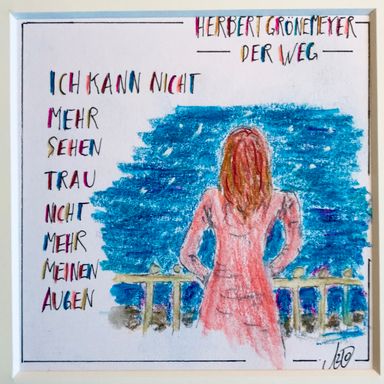 HERBERT GRÖNEMEYER
DER WEG
ICH KANN NICHT
MEHR
SEHEN
TRAU
NICHT
MEHR
MEINEN
AUGEN